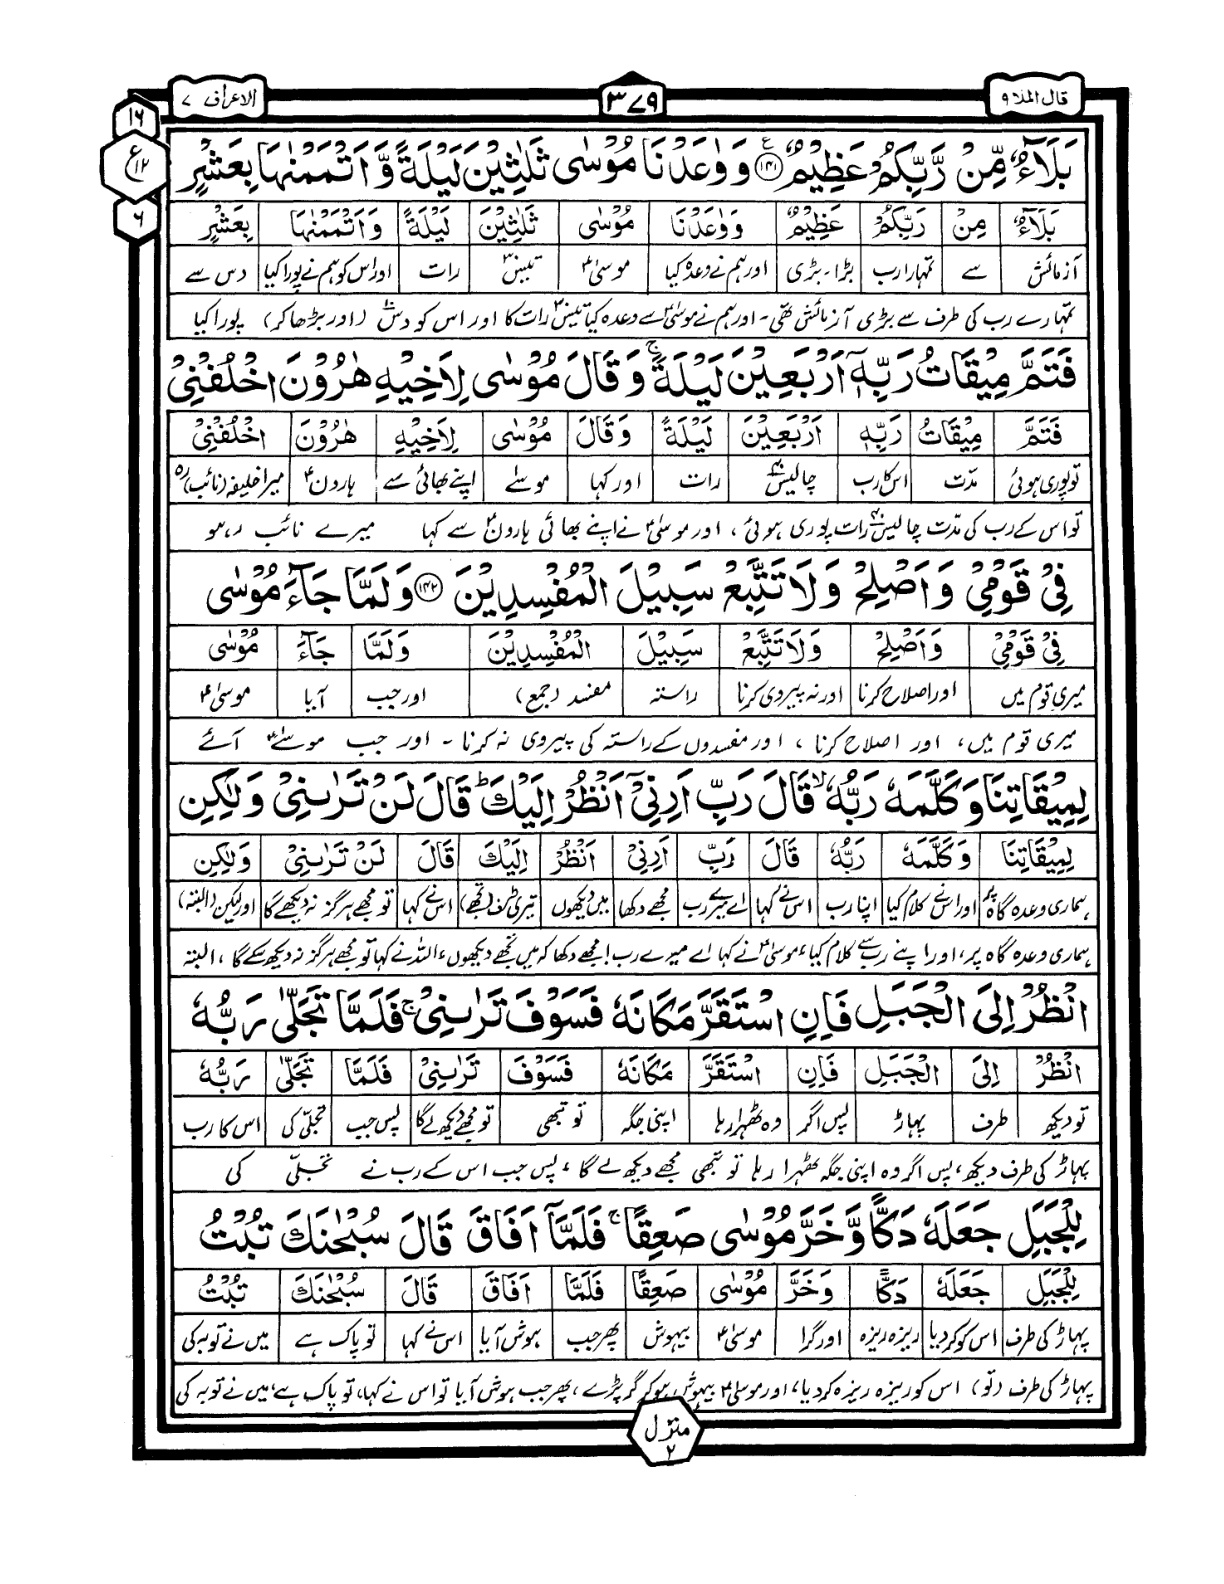 الاعراف ۷
۳۷۹
قال الملا ۹
۱۶
ع
۱۲
۶
بَلَآءٌ مِّنْ رَّبِّكُمْ عَظِيْمٌ ﴿۱۴۱﴾ ع وَ وٰعَدْنَا مُوْسٰى ثَلٰثِيْنَ لَيْلَةً وَّ اَتْمَمْنٰهَا بِعَشْرٍ
بَلَآءٌ | مِنْ | رَبِّكُمْ | عَظِيْمٌ | وَوٰعَدْنَا | مُوْسٰى | ثَلٰثِيْنَ | لَيْلَةً | وَاَتْمَمْنٰهَا | بِعَشْرٍ
آزمائش | سے | تمہارا رب | بڑا۔ بڑی | اور ہم نے وعدہ کیا | موسیٰؑ | تیس۳۰ | رات | اور اس کو ہم نے پورا کیا | دس سے
تمہارے رب کی طرف سے بڑی آزمائش تھی۔ اور ہم نے موسیٰؑ سے وعدہ کیا تیس۳۰ رات کا اور اس کو دس۱۰ (اور بڑھا کر) پورا کیا
فَتَمَّ مِيْقَاتُ رَبِّهٖٓ اَرْبَعِيْنَ لَيْلَةً ۚ وَ قَالَ مُوْسٰى لِاَخِيْهِ هٰرُوْنَ اخْلُفْنِيْ
فَتَمَّ | مِيْقَاتُ | رَبِّهٖ | اَرْبَعِيْنَ | لَيْلَةً | وَقَالَ | مُوْسٰى | لِاَخِيْهِ | هٰرُوْنَ | اخْلُفْنِيْ
تو پوری ہوئی | مدّت | اس کا رب | چالیس۴۰ | رات | اور کہا | موسےٰ | اپنے بھائی سے | ہارونؑ | میرا خلیفہ (نائب) رہ
تو اس کے رب کی مدّت چالیس۴۰ رات پوری ہوئی، اور موسیٰؑ نے اپنے بھائی ہارونؑ سے کہا میرے نائب رہو
فِيْ قَوْمِيْ وَ اَصْلِحْ وَ لَا تَتَّبِعْ سَبِيْلَ الْمُفْسِدِيْنَ ﴿۱۴۲﴾ وَ لَمَّا جَآءَ مُوْسٰى
فِيْ قَوْمِيْ | وَاَصْلِحْ | وَلَا تَتَّبِعْ | سَبِيْلَ | الْمُفْسِدِيْنَ | وَلَمَّا | جَآءَ | مُوْسٰى
میری قوم میں | اور اصلاح کرنا | اور نہ پیروی کرنا | راستہ | مفسد (جمع) | اور جب | آیا | موسیٰؑ
میری قوم میں، اور اصلاح کرنا، اور مفسدوں کے راستہ کی پیروی نہ کرنا۔ اور جب موسےٰؑ آئے
لِمِيْقَاتِنَا وَ كَلَّمَهٗ رَبُّهٗ ۙ قَالَ رَبِّ اَرِنِيْٓ اَنْظُرْ اِلَيْكَ ؕ قَالَ لَنْ تَرٰىنِيْ وَ لٰكِنِ
لِمِيْقَاتِنَا | وَكَلَّمَهٗ | رَبُّهٗ | قَالَ | رَبِّ | اَرِنِيْ | اَنْظُرْ | اِلَيْكَ | قَالَ | لَنْ تَرٰىنِيْ | وَلٰكِنِ
ہماری وعدہ گاہ پر | اور اس نے کلام کیا | اپنا رب | اس نے کہا | اے میرے رب | مجھے دکھا | میں دیکھوں | تیری طرف (تجھے) | اس نے کہا | تو مجھے ہرگز نہ دیکھے گا | اور لیکن (البتہ)
ہماری وعدہ گاہ پر، اور اپنے رب سے کلام کیا، موسیٰؑ نے کہا اے میرے رب! مجھے دکھا کہ میں تجھے دیکھوں، اللہ نے کہا تو مجھے ہرگز نہ دیکھ سکے گا، البتہ
انْظُرْ اِلَى الْجَبَلِ فَاِنِ اسْتَقَرَّ مَكَانَهٗ فَسَوْفَ تَرٰىنِيْ ۚ فَلَمَّا تَجَلّٰى رَبُّهٗ
انْظُرْ | اِلَى | الْجَبَلِ | فَاِنِ | اسْتَقَرَّ | مَكَانَهٗ | فَسَوْفَ | تَرٰىنِيْ | فَلَمَّا | تَجَلّٰى | رَبُّهٗ
تو دیکھ | طرف | پہاڑ | پس اگر | وہ ٹھہرا رہا | اپنی جگہ | تو تبھی | تو مجھے دیکھ لے گا | پس جب | تجلّی کی | اس کا رب
پہاڑ کی طرف دیکھ، پس اگر وہ اپنی جگہ ٹھہرا رہا تو تبھی مجھے دیکھ لے گا، پس جب اس کے رب نے تجلّی کی
لِلْجَبَلِ جَعَلَهٗ دَكًّا وَّ خَرَّ مُوْسٰى صَعِقًا ۚ فَلَمَّآ اَفَاقَ قَالَ سُبْحٰنَكَ تُبْتُ
لِلْجَبَلِ | جَعَلَهٗ | دَكًّا | وَخَرَّ | مُوْسٰى | صَعِقًا | فَلَمَّا | اَفَاقَ | قَالَ | سُبْحٰنَكَ | تُبْتُ
پہاڑ کی طرف | اس کو کر دیا | ریزہ ریزہ | اور گرا | موسیٰؑ | بیہوش | پھر جب | ہوش آیا | اس نے کہا | تو پاک ہے | میں نے توبہ کی
پہاڑ کی طرف (تو) اس کو ریزہ ریزہ کر دیا، اور موسیٰؑ بیہوش ہو کر گر پڑے، پھر جب ہوش آیا تو اس نے کہا، تو پاک ہے، میں نے توبہ کی
منزل
۲